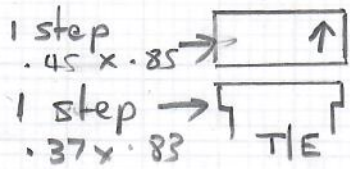 1 step
.45 x .85
1 step
.37 x .83
T/E